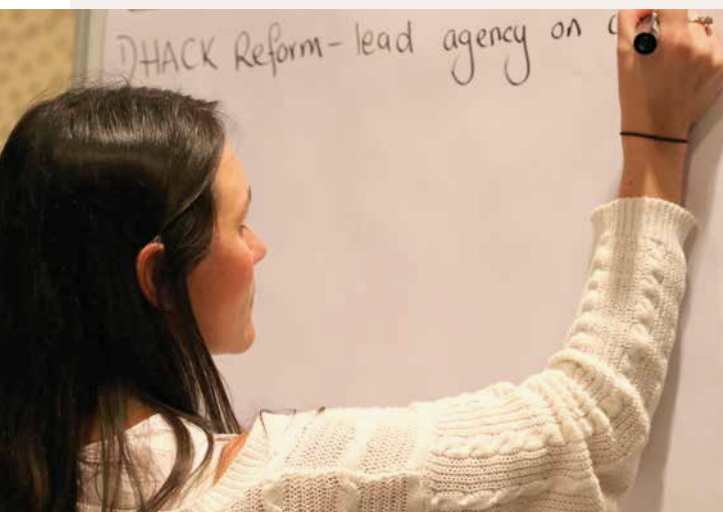 DHACK Reform - lead agency on